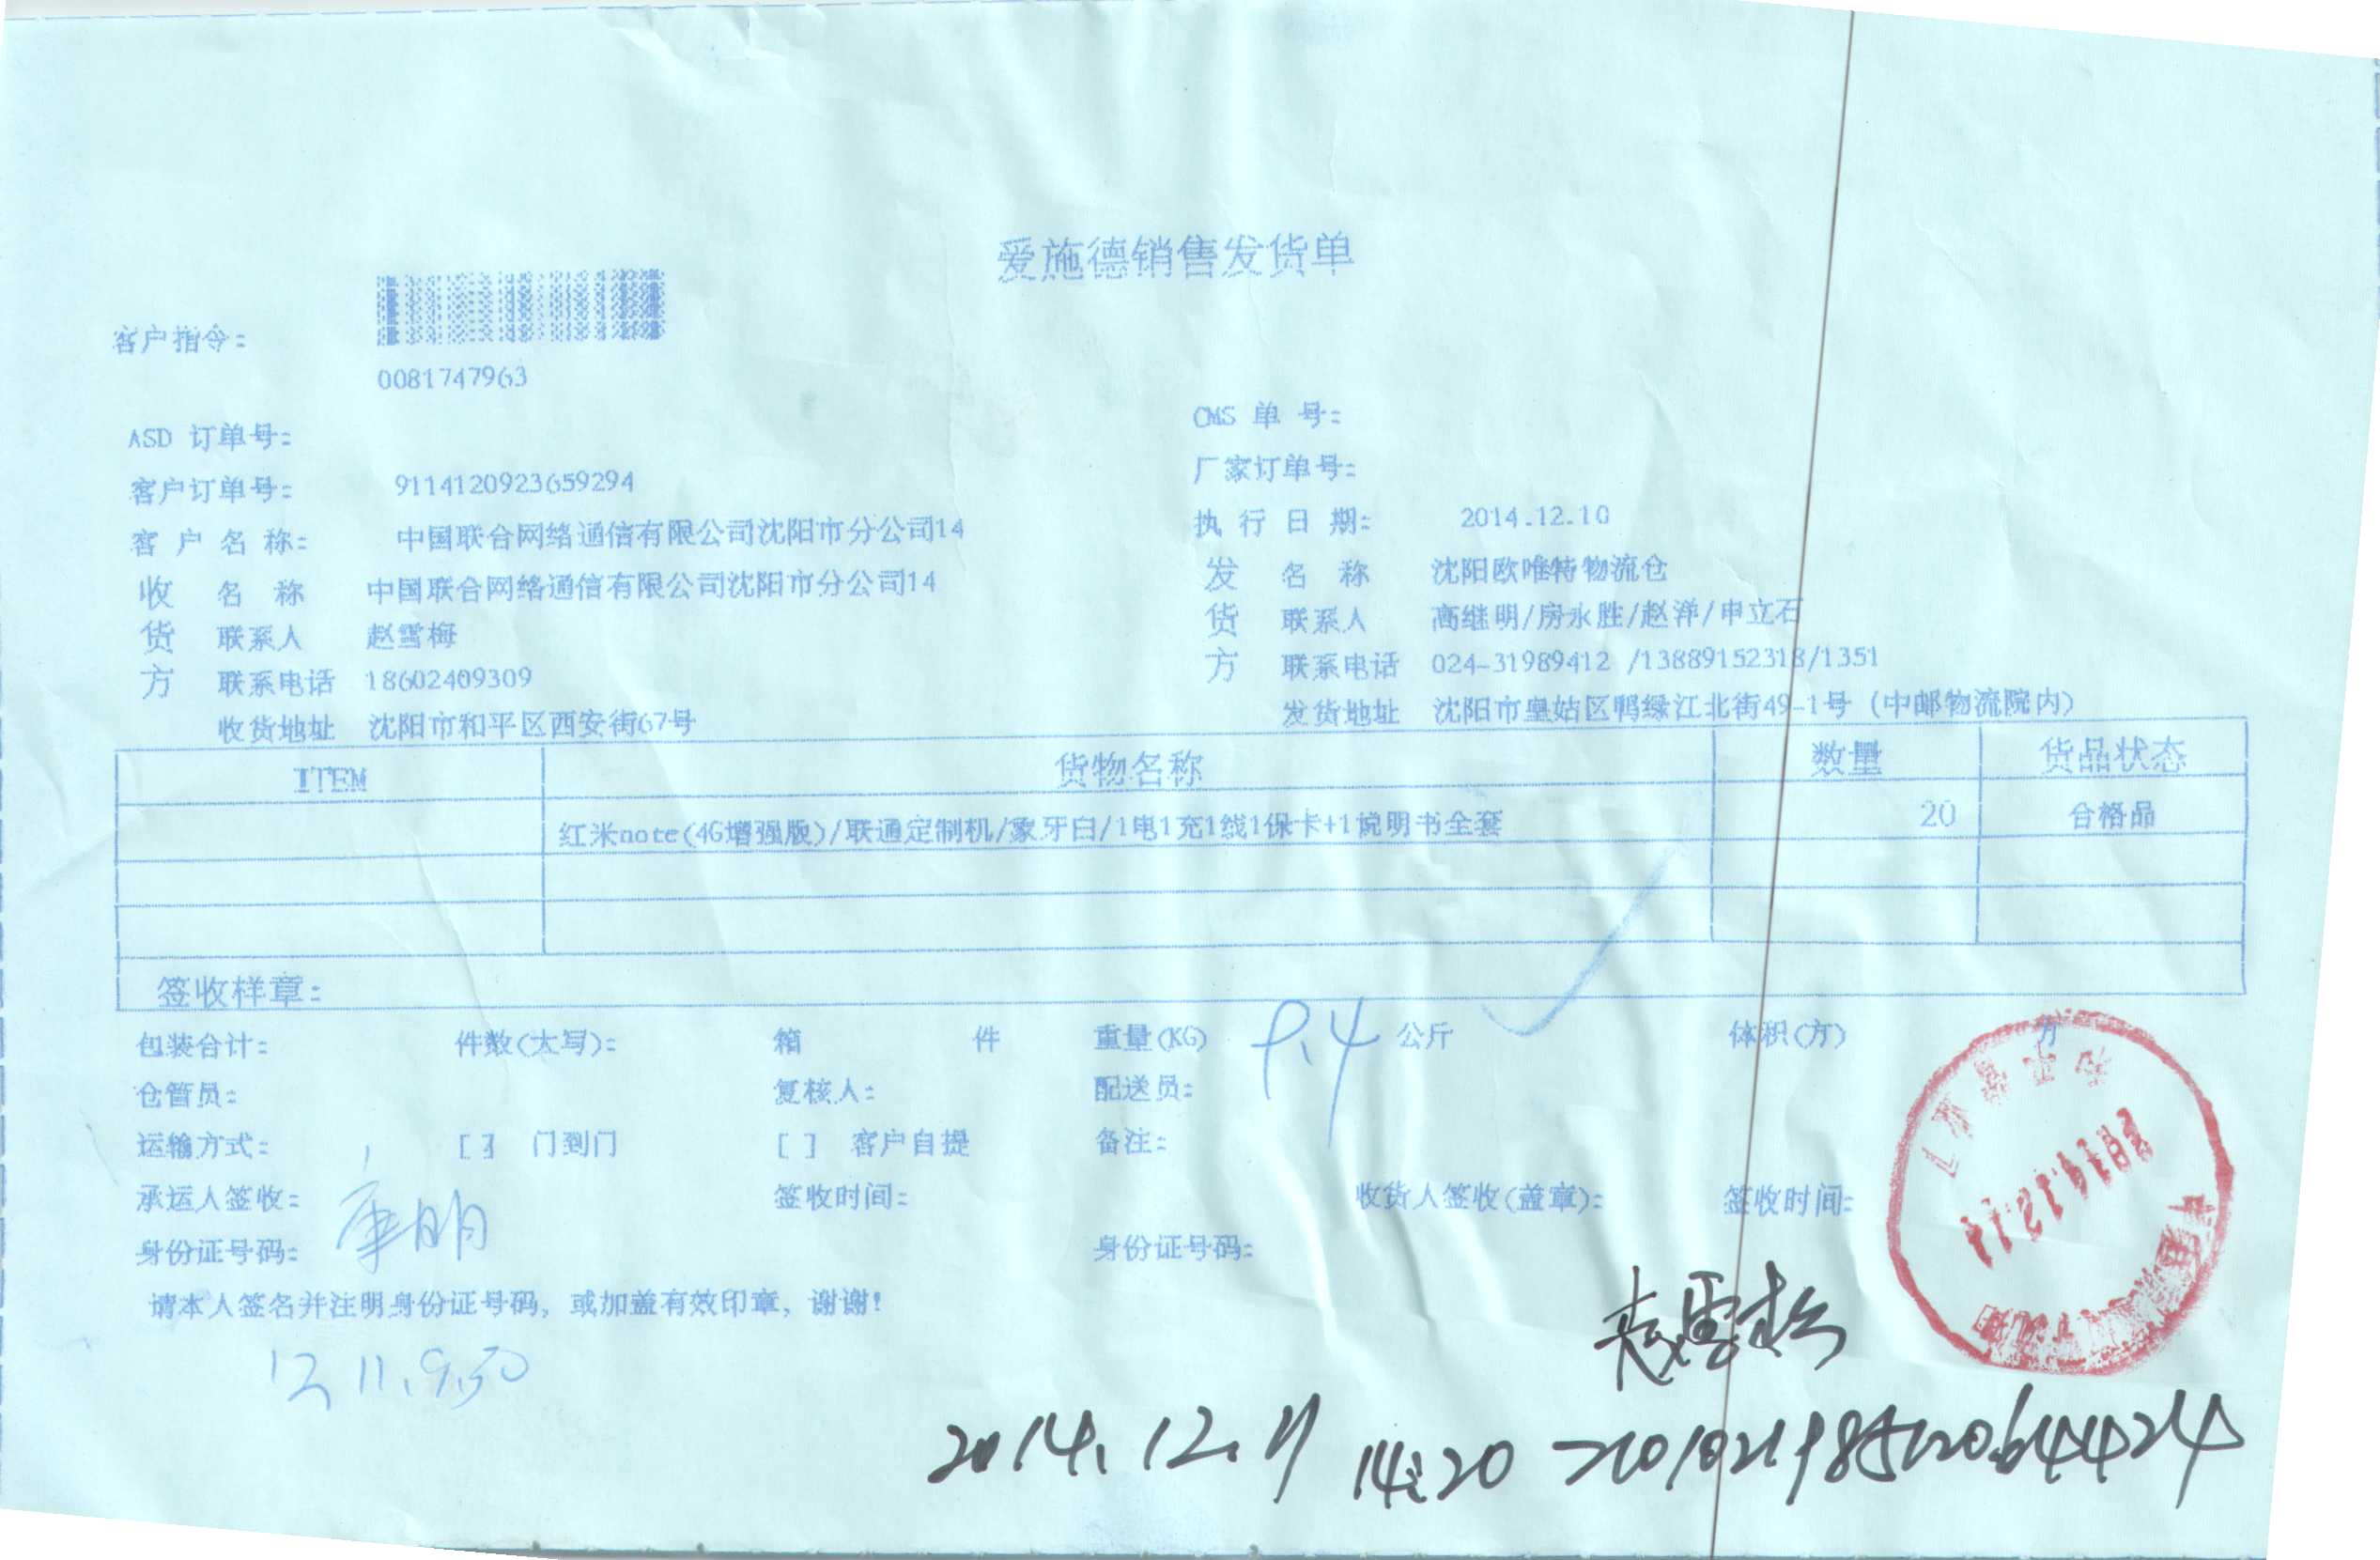 爱施德销售发货单
客户指令:
0081747963
ASD 订单号:
CMS 单 号:
客户订单号: 9114120923659294
厂家订单号:
客户名称: 中国联合网络通信有限公司沈阳市分公司14
执行日期: 2014.12.10
收货方 名称 中国联合网络通信有限公司沈阳市分公司14
发货方 名称 沈阳欧唯特物流仓
联系人 赵雪梅
联系人 高继明/房永胜/赵洋/申立石
联系电话 18602409309
联系电话 024-31989412 /13889152318/1351
收货地址 沈阳市和平区西安街67号
发货地址 沈阳市皇姑区鸭绿江北街49-1号 (中邮物流院内)
ITEM 货物名称 数量 货品状态
红米note(4G增强版)/联通定制机/象牙白/1电1充1线1保卡+1说明书全套 20 合格品
签收样章:
包装合计: 件数(大写): 箱 件 重量(KG) 9.4 公斤 体积(方) 方
仓管员: 复核人: 配送员:
运输方式: [ ] 门到门 [ ] 客户自提 备注:
承运人签收: 签收时间: 收货人签收(盖章): 签收时间:
身份证号码: 身份证号码:
请本人签名并注明身份证号码, 或加盖有效印章, 谢谢!
12 11.9.50
2014.12.11 14:20